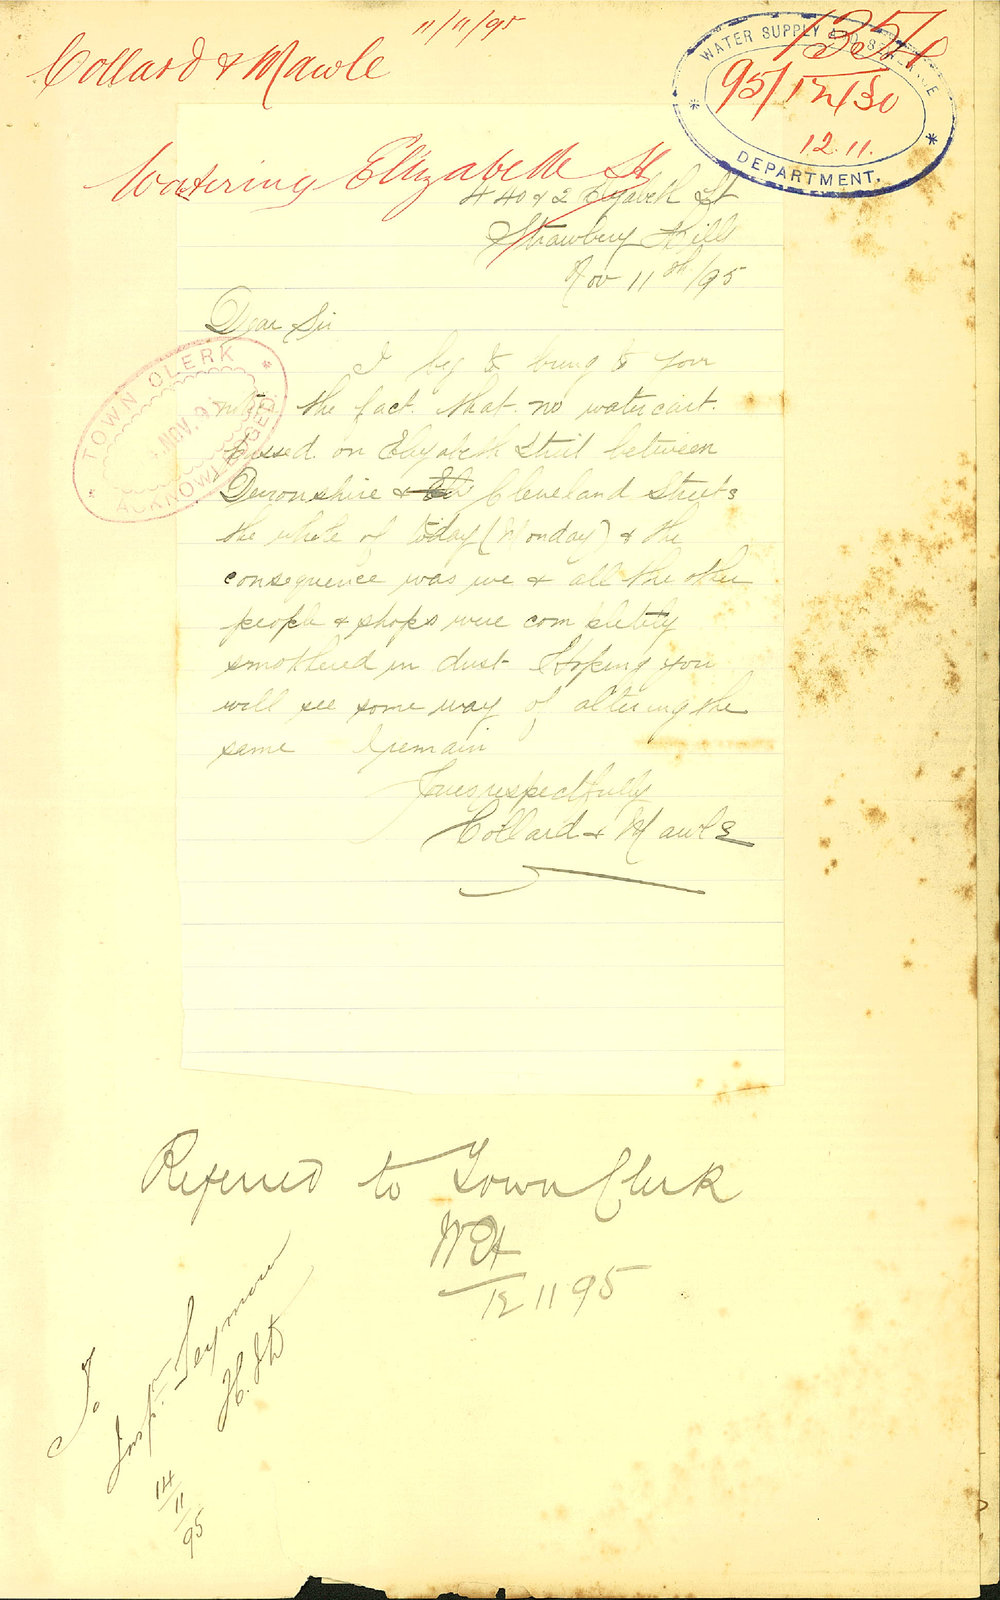 11/11/95
Collard & Mawle
WATER SUPPLY AND
1357/0
95/12130
12.11.
DEPARTMENT.
Watering Elizabeth St
440 & 2 Elizabeth St
Strawbery Hills
Nov 11th/95
Dear Sir
TOWN CLERK
NOV. 95
ACKNOWLEDGED
I beg to bring to your
notice the fact. that. no water cart.
passed. on Elizabeth Street between
Devonshire & Cleveland Streets
the whole of today (Monday) & the
consequence was we & all the other
people & shops were completely
smothered in dust Hoping you
will see some way of altering the
same I remain
Yours respectfully
Collard & Mawle
Referred to Town Clerk
12 11 95
To
Insp. Seymour
14/11/95